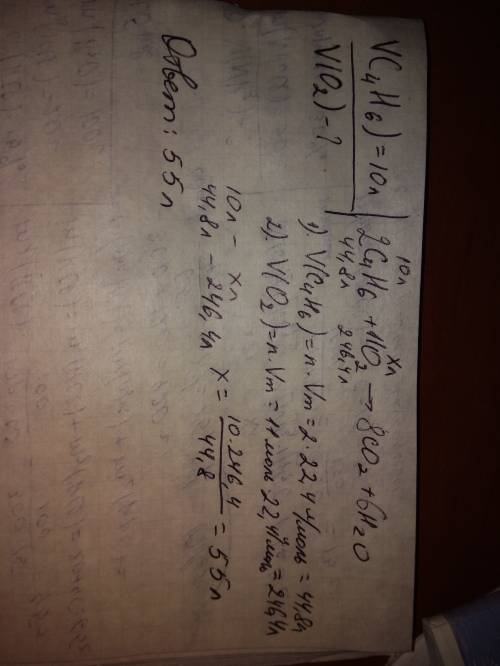 V(C₄H₆) = 10л
V(O₂) - ?
10л xл
2C₄H₆ + 11O₂ → 8CO₂ + 6H₂O
44,8л 246,4л
1). V(C₄H₆) = n · Vm = 2 · 22,4 л/моль = 44,8л
2). V(O₂) = n · Vm = 11 моль · 22,4 л/моль = 246,4л
10л - xл
44,8л - 246,4л x = 10 · 246,4 / 44,8 = 55л
Ответ: 55л